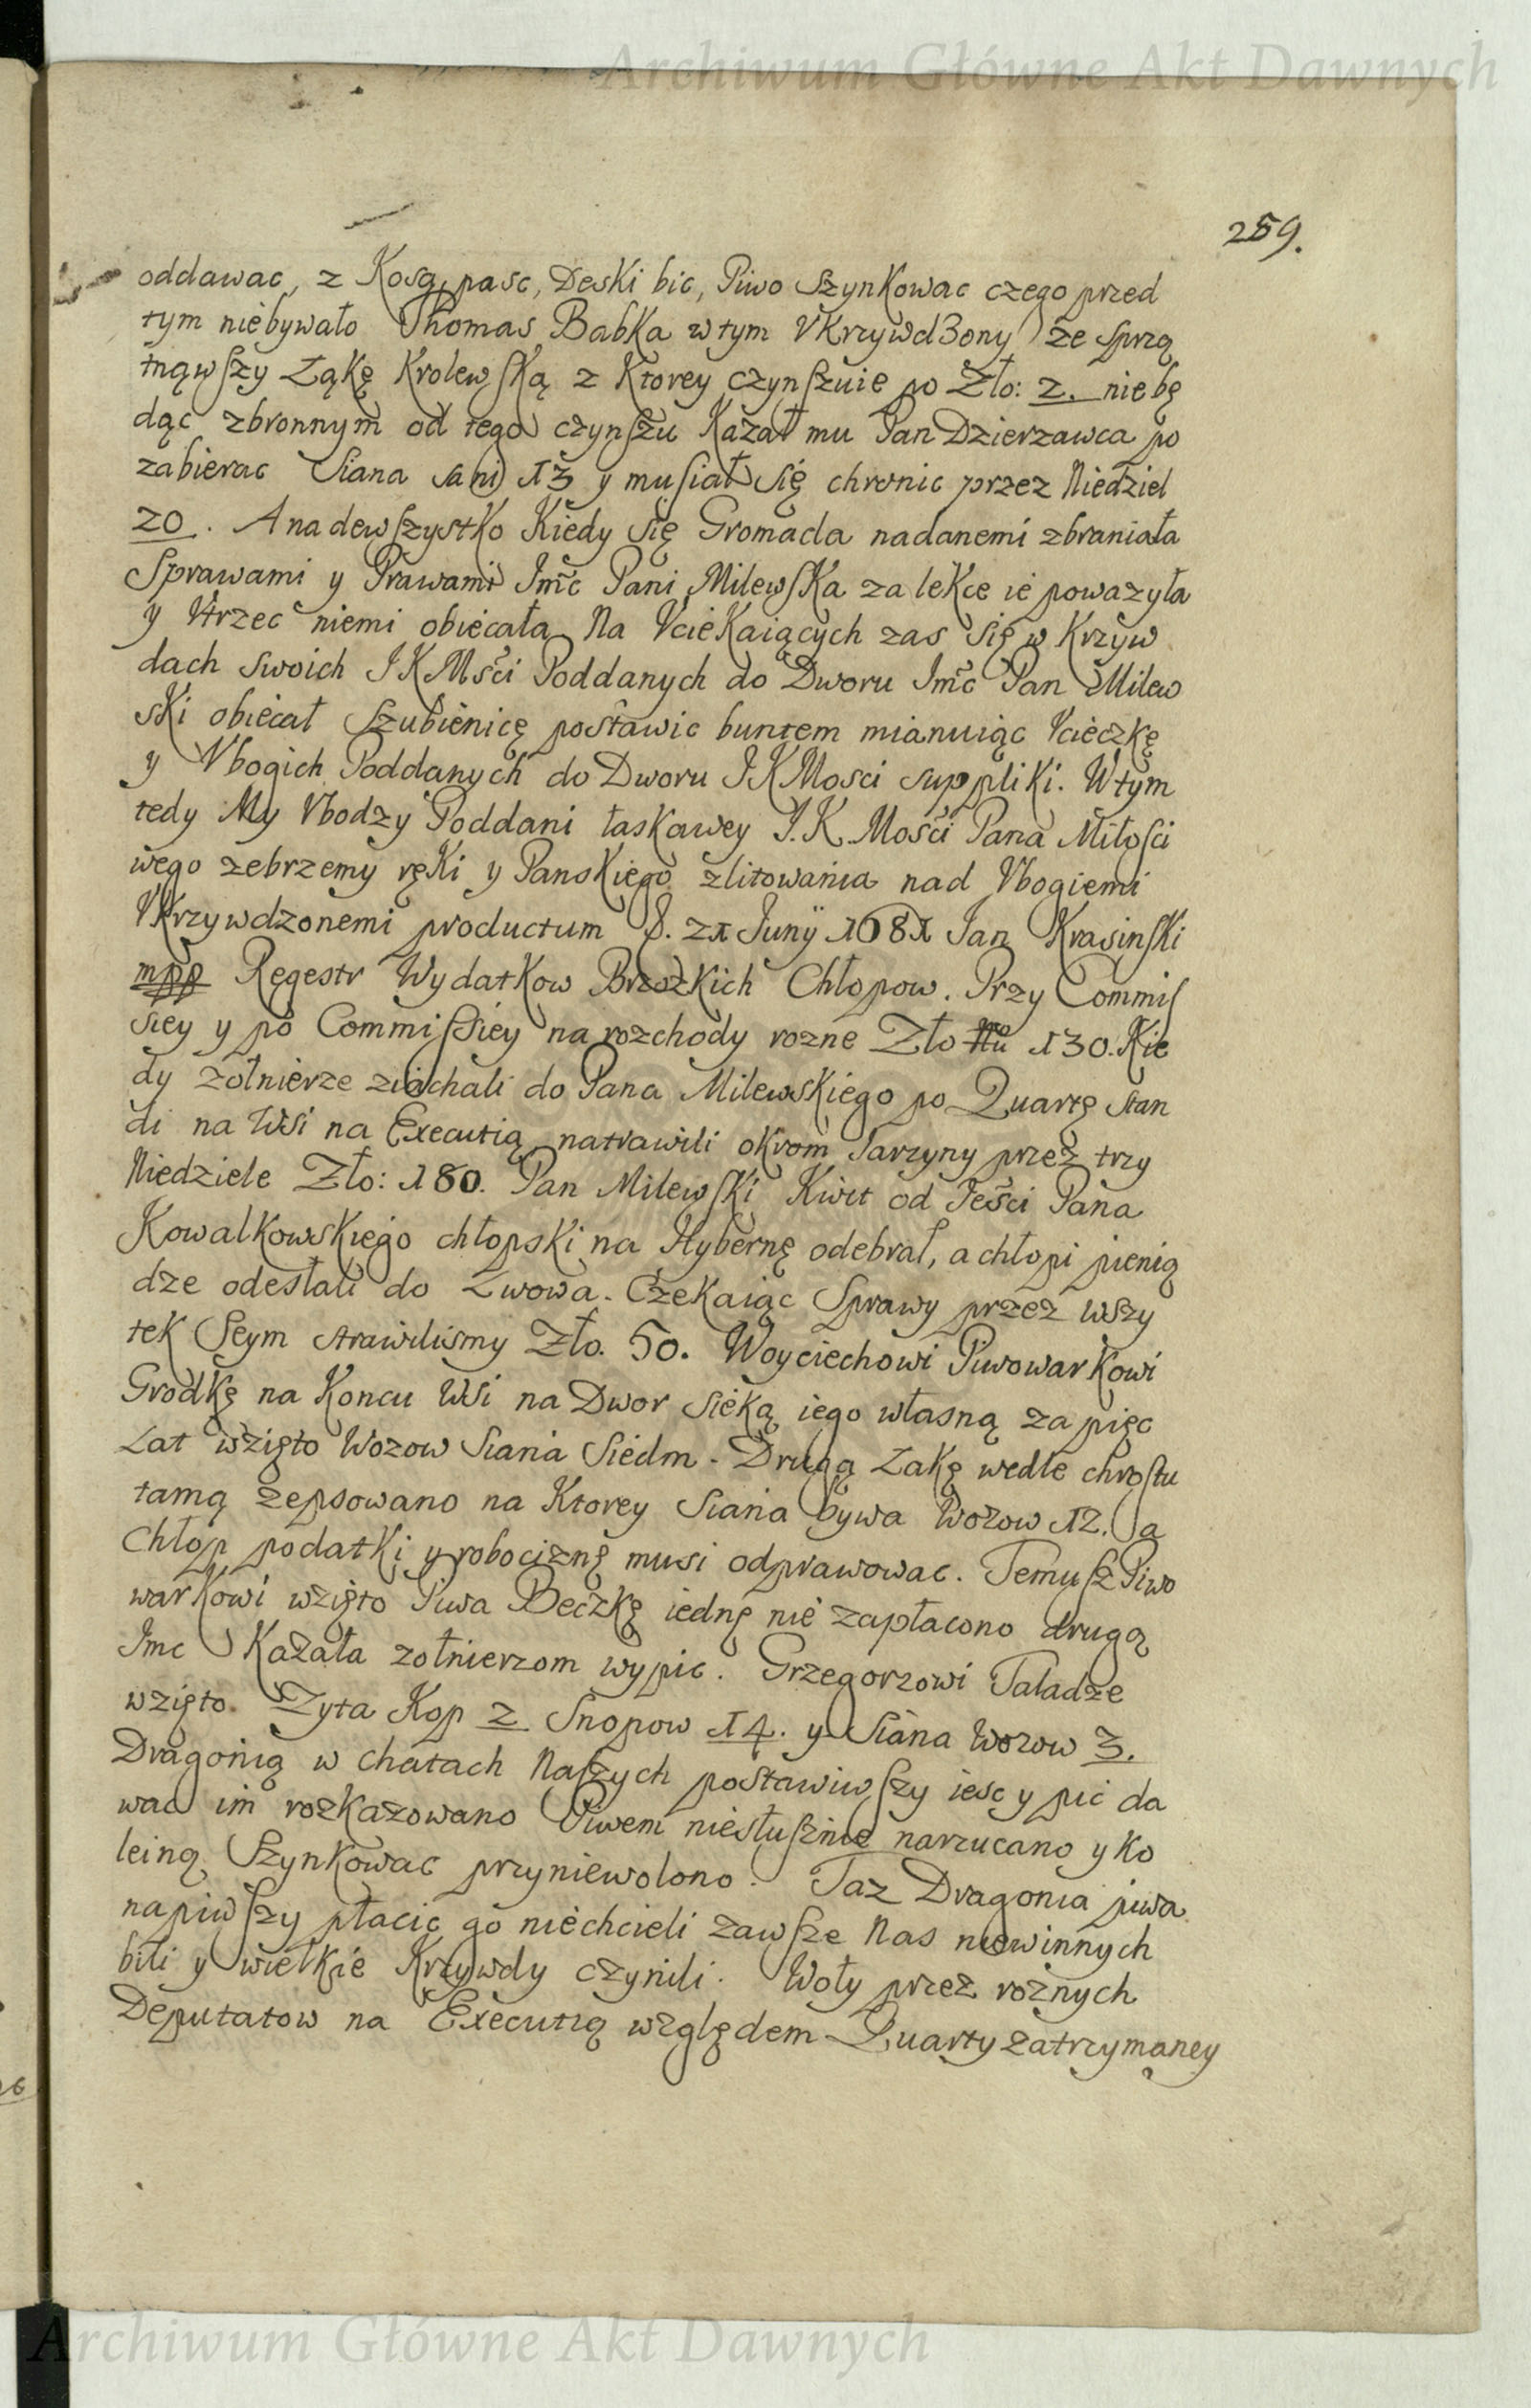 Archiwum Główne Akt Dawnych
259.
oddawac, z Kosą pasc, Deski bic, Piwo Szynkowac czego przed
tym niebywało Thomas Babka w tym Vkrzywdzony ze sprzą
tnąwszy Łąkę Krolewską z Ktorey czynszuie po Zło: 2. niebę
dąc zbronnym od tego czynszu Kazał mu Pan Dzierzawca po
zabierac Siana sani 13 y musiał się chronic przez Niedziel
20. A nadewszystko Kiedy się Gromada nadanemi zbraniała
Sprawami y Prawami Jmc Pani Milewska za lekce ie powazyła
y Vtrzec niemi obiecała Na Vciekaiących zas się w Krzyw
dach swoich J K Mści Poddanych do Dworu Jmc Pan Milew
ski obiecał Szubienicę postawic buntem mianuiąc Vcieczkę
y Vbogich Poddanych do Dworu J K Mosci suppliki. W tym
tedy My Vbodzy Poddani łaskawey J. K. Mości Pana Miłości
wego zebrzemy ręki y Panskiego zlitowania nad Vbogiemi
Vkrzywdzonemi productum d. 21 Junÿ 1681 Jan Krasinski
mpp Regestr Wydatkow Brzozkich Chłopow. Przy Commis
siey y po Commissiey na rozchody rozne Zło 130. Kie
dy zołnierze ziachali do Pana Milewskiego po Quartę stan
ęli na Wsi na Executią natrawili okrom Jarzyny przez trzy
Niedziele Zło: 180. Pan Milewski Kwit od Jeści Pana
Kowalkowskiego chłopski na Hybernę odebrał, a chłopi pienią
dze odesłali do Lwowa. Czekaiąc Sprawy przez wszy
tek Seym strawilismy Zło. 50. Woyciechowi Piwowarkowi
Grodkę na Koncu Wsi na Dwor sieką iego własną za pięc
Lat wzięto Wozow Siana Siedm. Drugą Łakę wedle chrostu
tamą zepsowano na Ktorey Siana bywa Wozow 12. a
Chłop podatki y robociznę musi odprawowac. Temusz Piwo
warkowi wzięto Piwa Beczkę iednę nie zapłacono drugą
Jmc Kazała zołnierzom wypic. Grzegorzowi Taladze
wzięto Zyta Kop 2 Snopow 14. y Siana Wozow 3.
Dragonią w chatach Naszych postawiwszy iesc y pic da
wac im rozkazowano Piwem niesłusznie narzucano y ko
leiną Szynkowac przyniewolono. Taz Dragonia piwa
napiwszy płacic go niechcieli zawsze Nas niewinnych
bili y wielkie Krzywdy czynili. Woły przez roznych
Deputatow na Executią względem Quarty zatrzymaney
Archiwum Główne Akt Dawnych